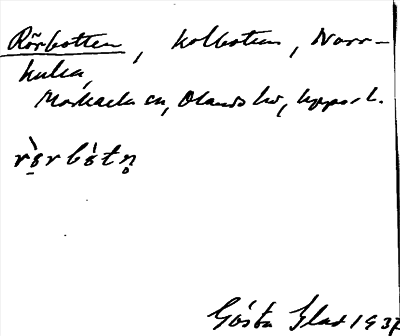 Rörbotten, kolbotten, Norr-
kulla,
Morkarla sn, Olands hd, Uppsl.
rö̀rbót
Gösta Glad 1937